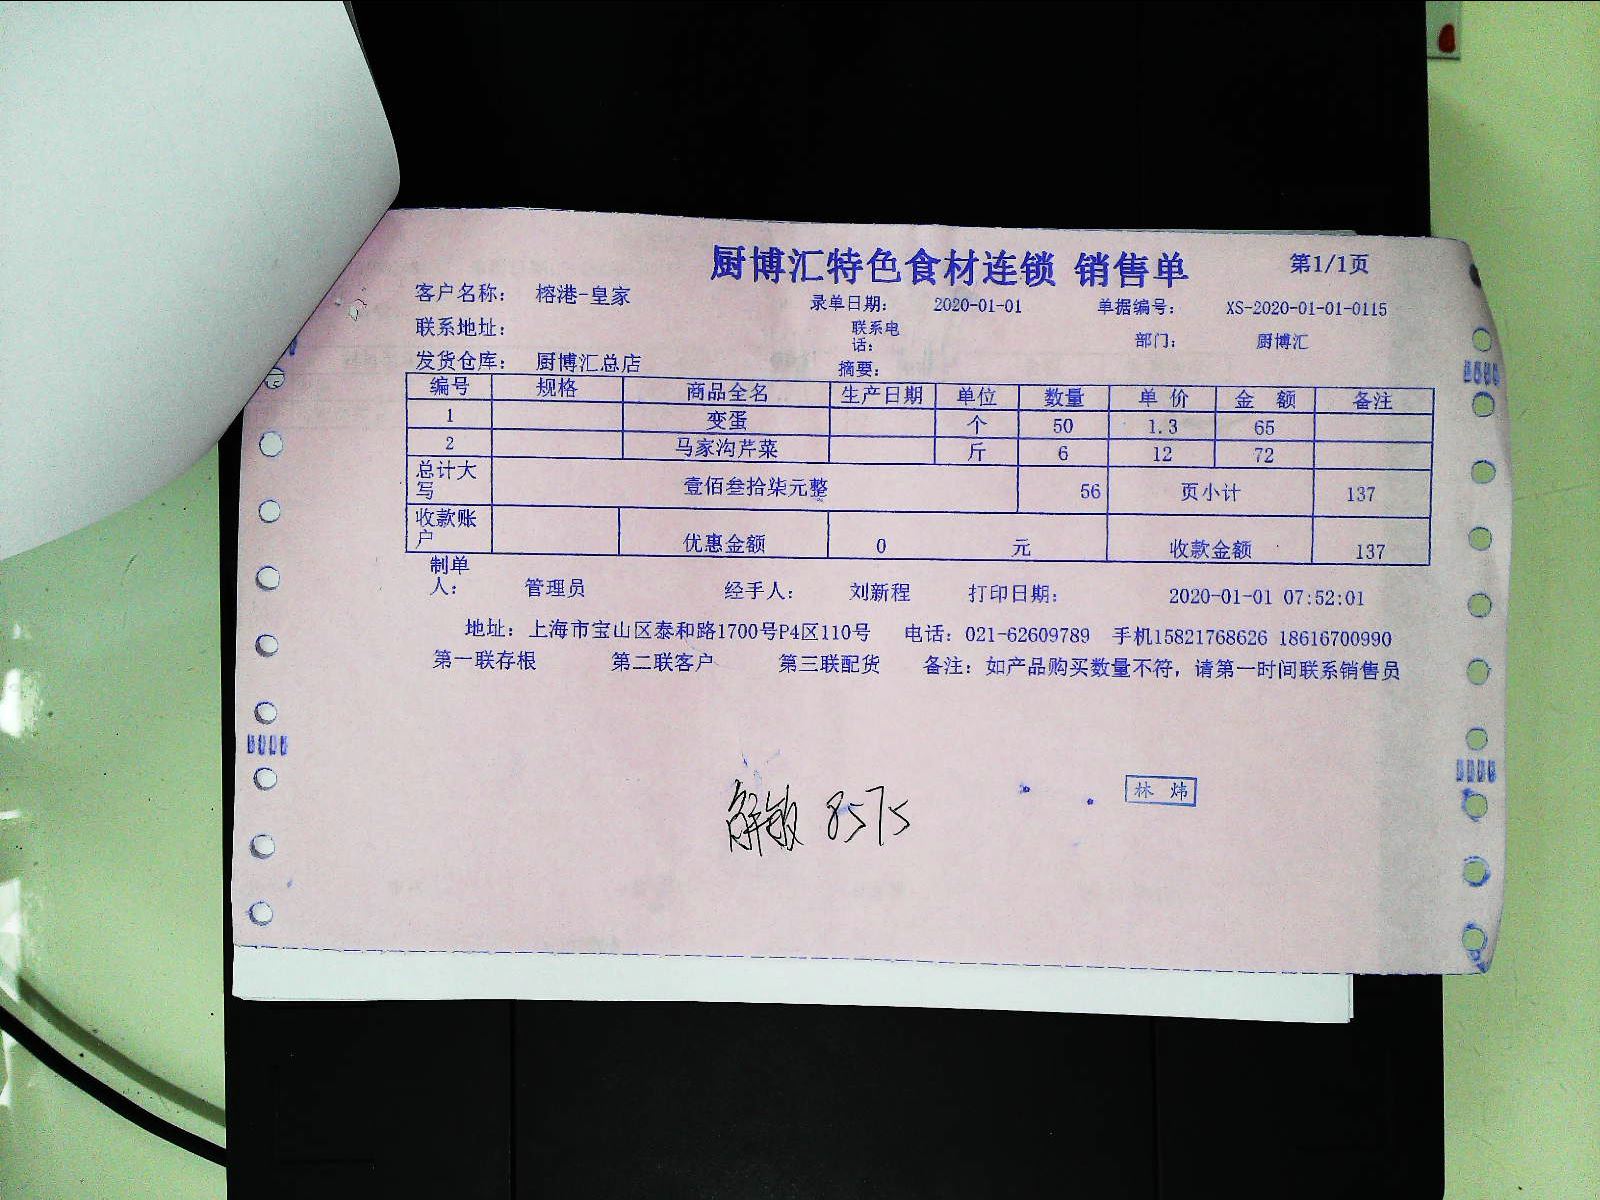 厨博汇特色食材连锁 销售单 第1/1页
客户名称: 榕港-皇家 录单日期: 2020-01-01 单据编号: XS-2020-01-01-0115
联系地址: 联系电话: 部门: 厨博汇
发货仓库: 厨博汇总店 摘要:
编号 规格 商品全名 生产日期 单位 数量 单 价 金 额 备注
1 变蛋 个 50 1.3 65
2 马家沟芹菜 斤 6 12 72
总计大写 壹佰叁拾柒元整 56 页小计 137
收款账户 优惠金额 0 元 收款金额 137
制单人: 管理员 经手人: 刘新程 打印日期: 2020-01-01 07:52:01
地址: 上海市宝山区泰和路1700号P4区110号 电话: 021-62609789 手机15821768626 18616700990
第一联存根 第二联客户 第三联配货 备注: 如产品购买数量不符, 请第一时间联系销售员
解敏 8575
林 炜